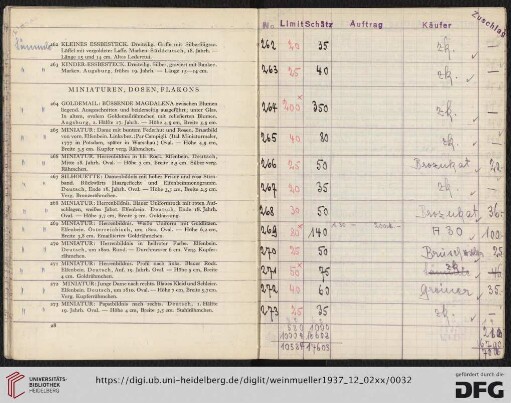 262 KLEINES ESSBESTECK. Dreiteilig. Griffe mit Silberfiligran.
Löffel mit vergoldeter Laffe. Marken. Süddeutsch, 18. Jahrh. —
Länge 15 und 14 cm. Altes Lederetui.
263 KINDER-ESSBESTECK. Dreiteilig. Silber, graviert mit Bandwerk.
Marken. Augsburg, frühes 19. Jahrh. — Länge 15—14 cm.
MINIATUREN, DOSEN, FLAKONS
264 GOLDEMAIL: BÜSSENDE MAGDALENA zwischen Blumen
liegend. Ausgeschnitten und beiderseitig ausgeführt, unter Glas.
In altem, ovalem Goldemailrähmchen mit reliefierten Blumen.
Augsburg, 2. Hälfte 17. Jahrh. — Höhe 2,9 cm, Breite 3,9 cm.
265 MINIATUR: Dame mit buntem Federhut und Rosen. Brustbild
von vorn. Elfenbein. Links bez.: Pre Campigli. (Ital. Miniaturmaler,
1777 in Potsdam, später in Warschau.) Oval. — Höhe 4,9 cm,
Breite 3,9 cm. Kupfer verg. Rähmchen.
266 MINIATUR: Herrenbildnis in lila Rock. Elfenbein. Deutsch,
Mitte 18. Jahrh. Oval. — Höhe 3 cm, Breite 2,5 cm. Silber verg.
Rähmchen.
267 SILHOUETTE: Damenbildnis mit hoher Frisur und rosa Stern-
band. Rückwärts Haargeflecht und Elfenbeinmonogramm.
Deutsch, Ende 18. Jahrh. Oval. — Höhe 3,7 cm, Breite 2,5 cm.
Verg. Bronzerähmchen.
268 MINIATUR: Herrenbildnis. Blauer Uniformrock mit roten Auf-
schlägen, weißes Jabot. Elfenbein. Deutsch, Ende 18. Jahrh.
Oval. — Höhe 3,7 cm, Breite 3 cm. Goldfassung.
269 MINIATUR: Herrenbildnis. Weiße Uniform mit Goldlitzen.
Elfenbein. Österreichisch, um 1800. Oval. — Höhe 6,2 cm,
Breite 5,8 cm. Emailliertes Goldrähmchen.
270 MINIATUR: Herrenbildnis in hellroter Farbe. Elfenbein.
Deutsch, um 1800. Rund. — Durchmesser 6 cm. Verg. Kupfer-
rähmchen.
271 MINIATUR: Herrenbildnis. Profil nach links. Blauer Rock.
Elfenbein. Deutsch, Anf. 19. Jahrh. Oval. — Höhe 5 cm, Breite
4 cm. Goldrähmchen.
272 MINIATUR: Junge Dame nach rechts. Blaues Kleid und Schleier.
Elfenbein. Deutsch, um 1810. Oval. — Höhe 7 cm, Breite 5,7 cm.
Verg. Kupferrähmchen.
273 MINIATUR: Papstbildnis nach rechts. Deutsch, 1. Hälfte
19. Jahrh. Oval. — Höhe 4 cm, Breite 3,5 cm. Stahlrähmchen.
28
No. Limit Schätz Auftrag Käufer Zuschlag
262 20 35 zk. —
263 25 40 zk. —
264 200 350 zk. —
265 40 80 zk. —
266 25 50
267 20 35 zk. —
268 30 50
269 140 A 30 100
270 25 50
271 50 75
272 40 60 Greiner 35
273 25 35 zk. —
580 1000
17603
UNIVERSITÄTS-
BIBLIOTHEK
HEIDELBERG
https://digi.ub.uni-heidelberg.de/diglit/weinmueller1937_12_02xx/0032
gefördert durch die
DFG